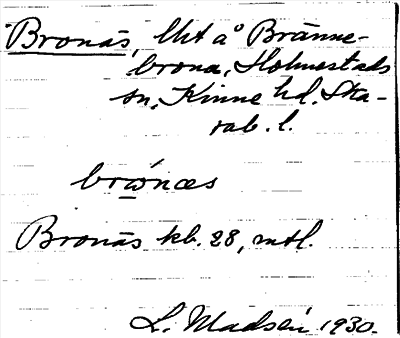 Bronäs, lht å Bränne-
brona, Holmestads
sn, Kinne hd. Ska-
rab. l.
brώ̲næs
Bronäs kb. 28, mtl.
L. Madsén 1930.